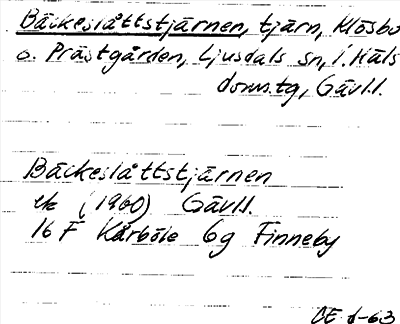 Bäckeslåttstjärnen, tjärn, Klösbo
o. Prästgården, Ljusdals sn, i. Häls
doms.tg, Gävl.l.
Bäckeslåttstjärnen
ek (1960) Gävl.l.
16 F Kårböle 6g Finneby
CE 1-63